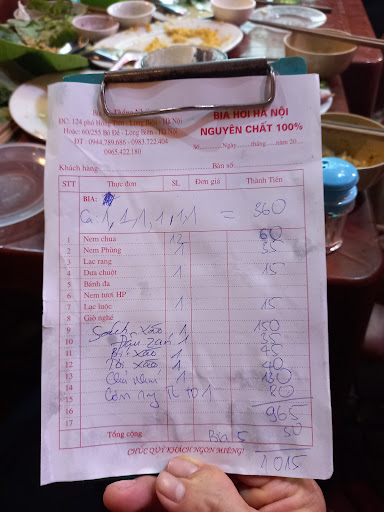 ĐC: 124 phố Hồng Tiến - Long Biên - Hà Nội
Hoặc: 60/255 Bồ Đề - Long Biên - Hà Nội
ĐT : 0944.789.686 - 0983.722.404
0965.422.180
BIA HƠI HÀ NỘI
NGUYÊN CHẤT 100%
Số..........Ngày......tháng.....năm 20....
Khách hàng Bàn số
STT Thực đơn SL Đơn giá Thành Tiền
BIA:
Ca 1, 1, 1, 1, 1, 1 = 360
1 Nem chua 12 60
2 Nem Phùng 1 35
3 Lạc rang
4 Dưa chuột 1 15
5 Bánh đa
6 Nem tươi HP
7 Lạc luộc 1 15
8 Giò nghé
9 xào 1 150
10 Đậu rán 1 35
11 Bí xào 1 45
12 xào 1 40
13 1 130
14 Cơm 1 80
15
16 965
17 Bia 5 50
Tổng cộng 1015
CHÚC QUÝ KHÁCH NGON MIỆNG!